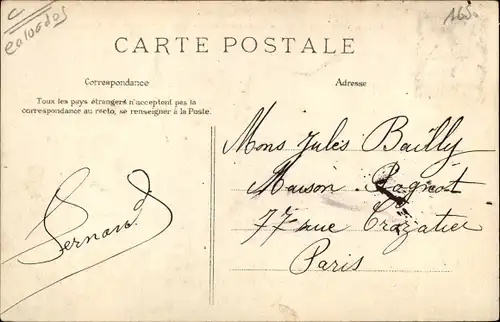 C
calvados
1650
CARTE POSTALE
Correspondance
Adresse
Tous les pays étrangers n'acceptent pas la
correspondance au recto, se renseigner à la Poste.
Mons Jules Bailly
Maison
77 rue Crozatier
Paris
Fernand